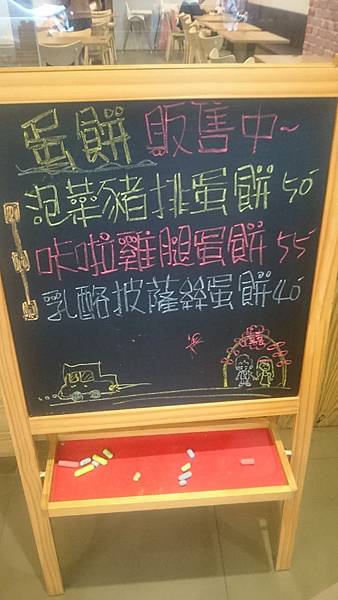 蛋餅 販售中~
泡菜豬排蛋餅 50
咔啦雞腿蛋餅 55
乳酪披薩絲蛋餅 40